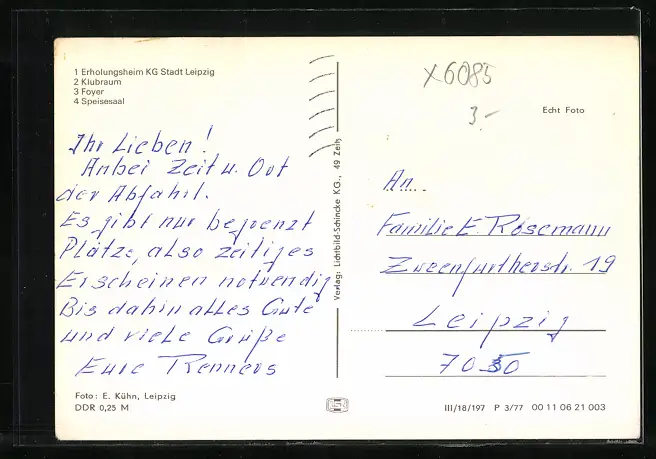 1 Erholungsheim KG Stadt Leipzig
2 Klubraum
3 Foyer
4 Speisesaal
Ihr Lieben!
Anbei Zeit u. Ort
der Abfahrt.
Es gibt nur begrenzt
Plätze, also zeitiges
Erscheinen notwendig
Bis dahin alles Gute
und viele Grüße
Eure Renners
Foto: E. Kühn, Leipzig
DDR 0,25 M
Verlag: Lichtbild-Schincke KG., 49 Zeitz
X6085
3,-
Echt Foto
An...
Familie E. Rosemann
Zweenfurtherstr. 19
Leipzig
7050
III/18/197 P 3/77 00 11 06 21 003